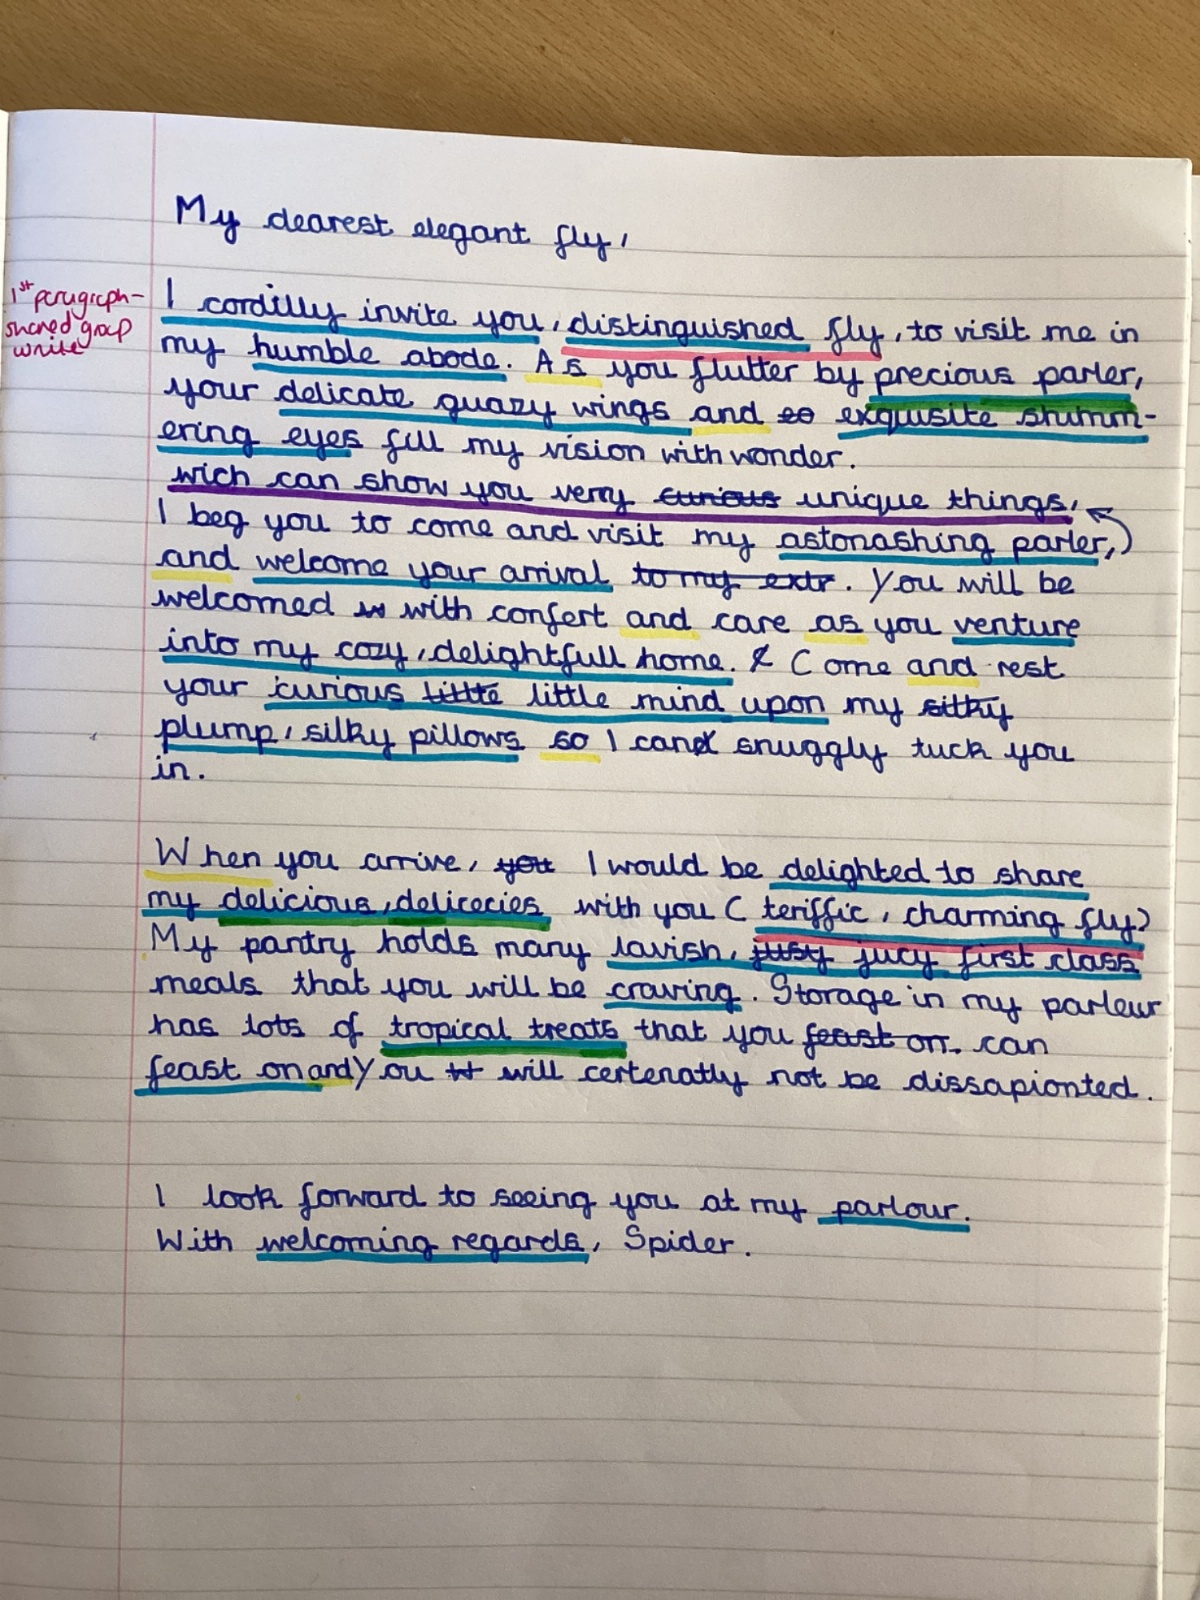 My dearest elegant fly,
1st paragraph-
shared group
write
I cordilly invite you, distinguished fly, to visit me in
my humble abode. As you flutter by precious parler,
your delicate guazy wings and so exquisite shimm-
ering eyes fill my vision with wonder.
wich can show you verry curious unique things,
I beg you to come and visit my astonashing parler,
and welcome your arrival to my extr. You will be
welcomed with confert and care as you venture
into my cozy, delightfull home. Come and rest
your curious little little mind upon my silky
plump, silky pillows so I can snuggly tuck you
in.
When you arrive, you I would be delighted to share
my delicious, delicecies with you ( teriffic, charming fly)
My pantry holds many lavish, jusy jucy first class
meals that you will be craving. Storage in my parleur
has lots of tropical treats that you feast on. can
feast on and You will certenatly not be dissapionted.
I look forward to seeing you at my parlour.
With welcoming regards, Spider.